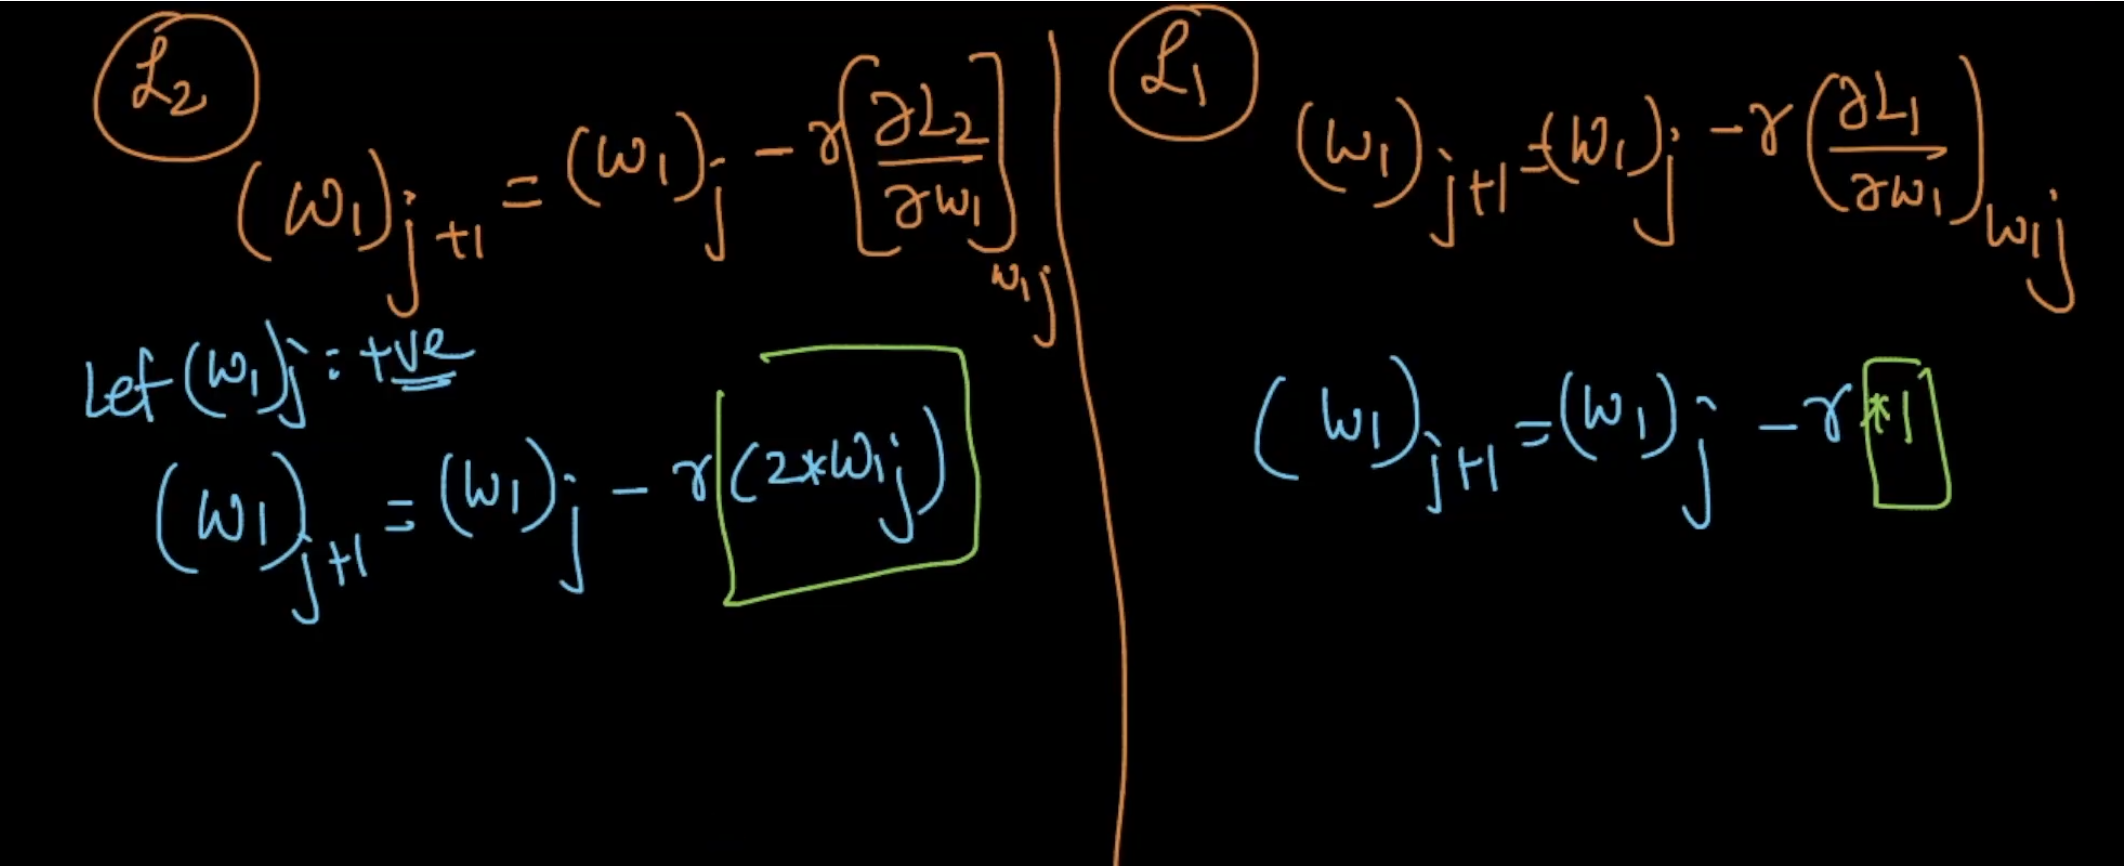 L₂
(w₁)j+1 = (w₁)j - r[∂L₂/∂w₁]w₁j
Let (w₁)j : +ve
(w₁)j+1 = (w₁)j - r(2*w₁j)
L₁
(w₁)j+1 = (w₁)j - r(∂L₁/∂w₁)w₁j
(w₁)j+1 = (w₁)j - r*1